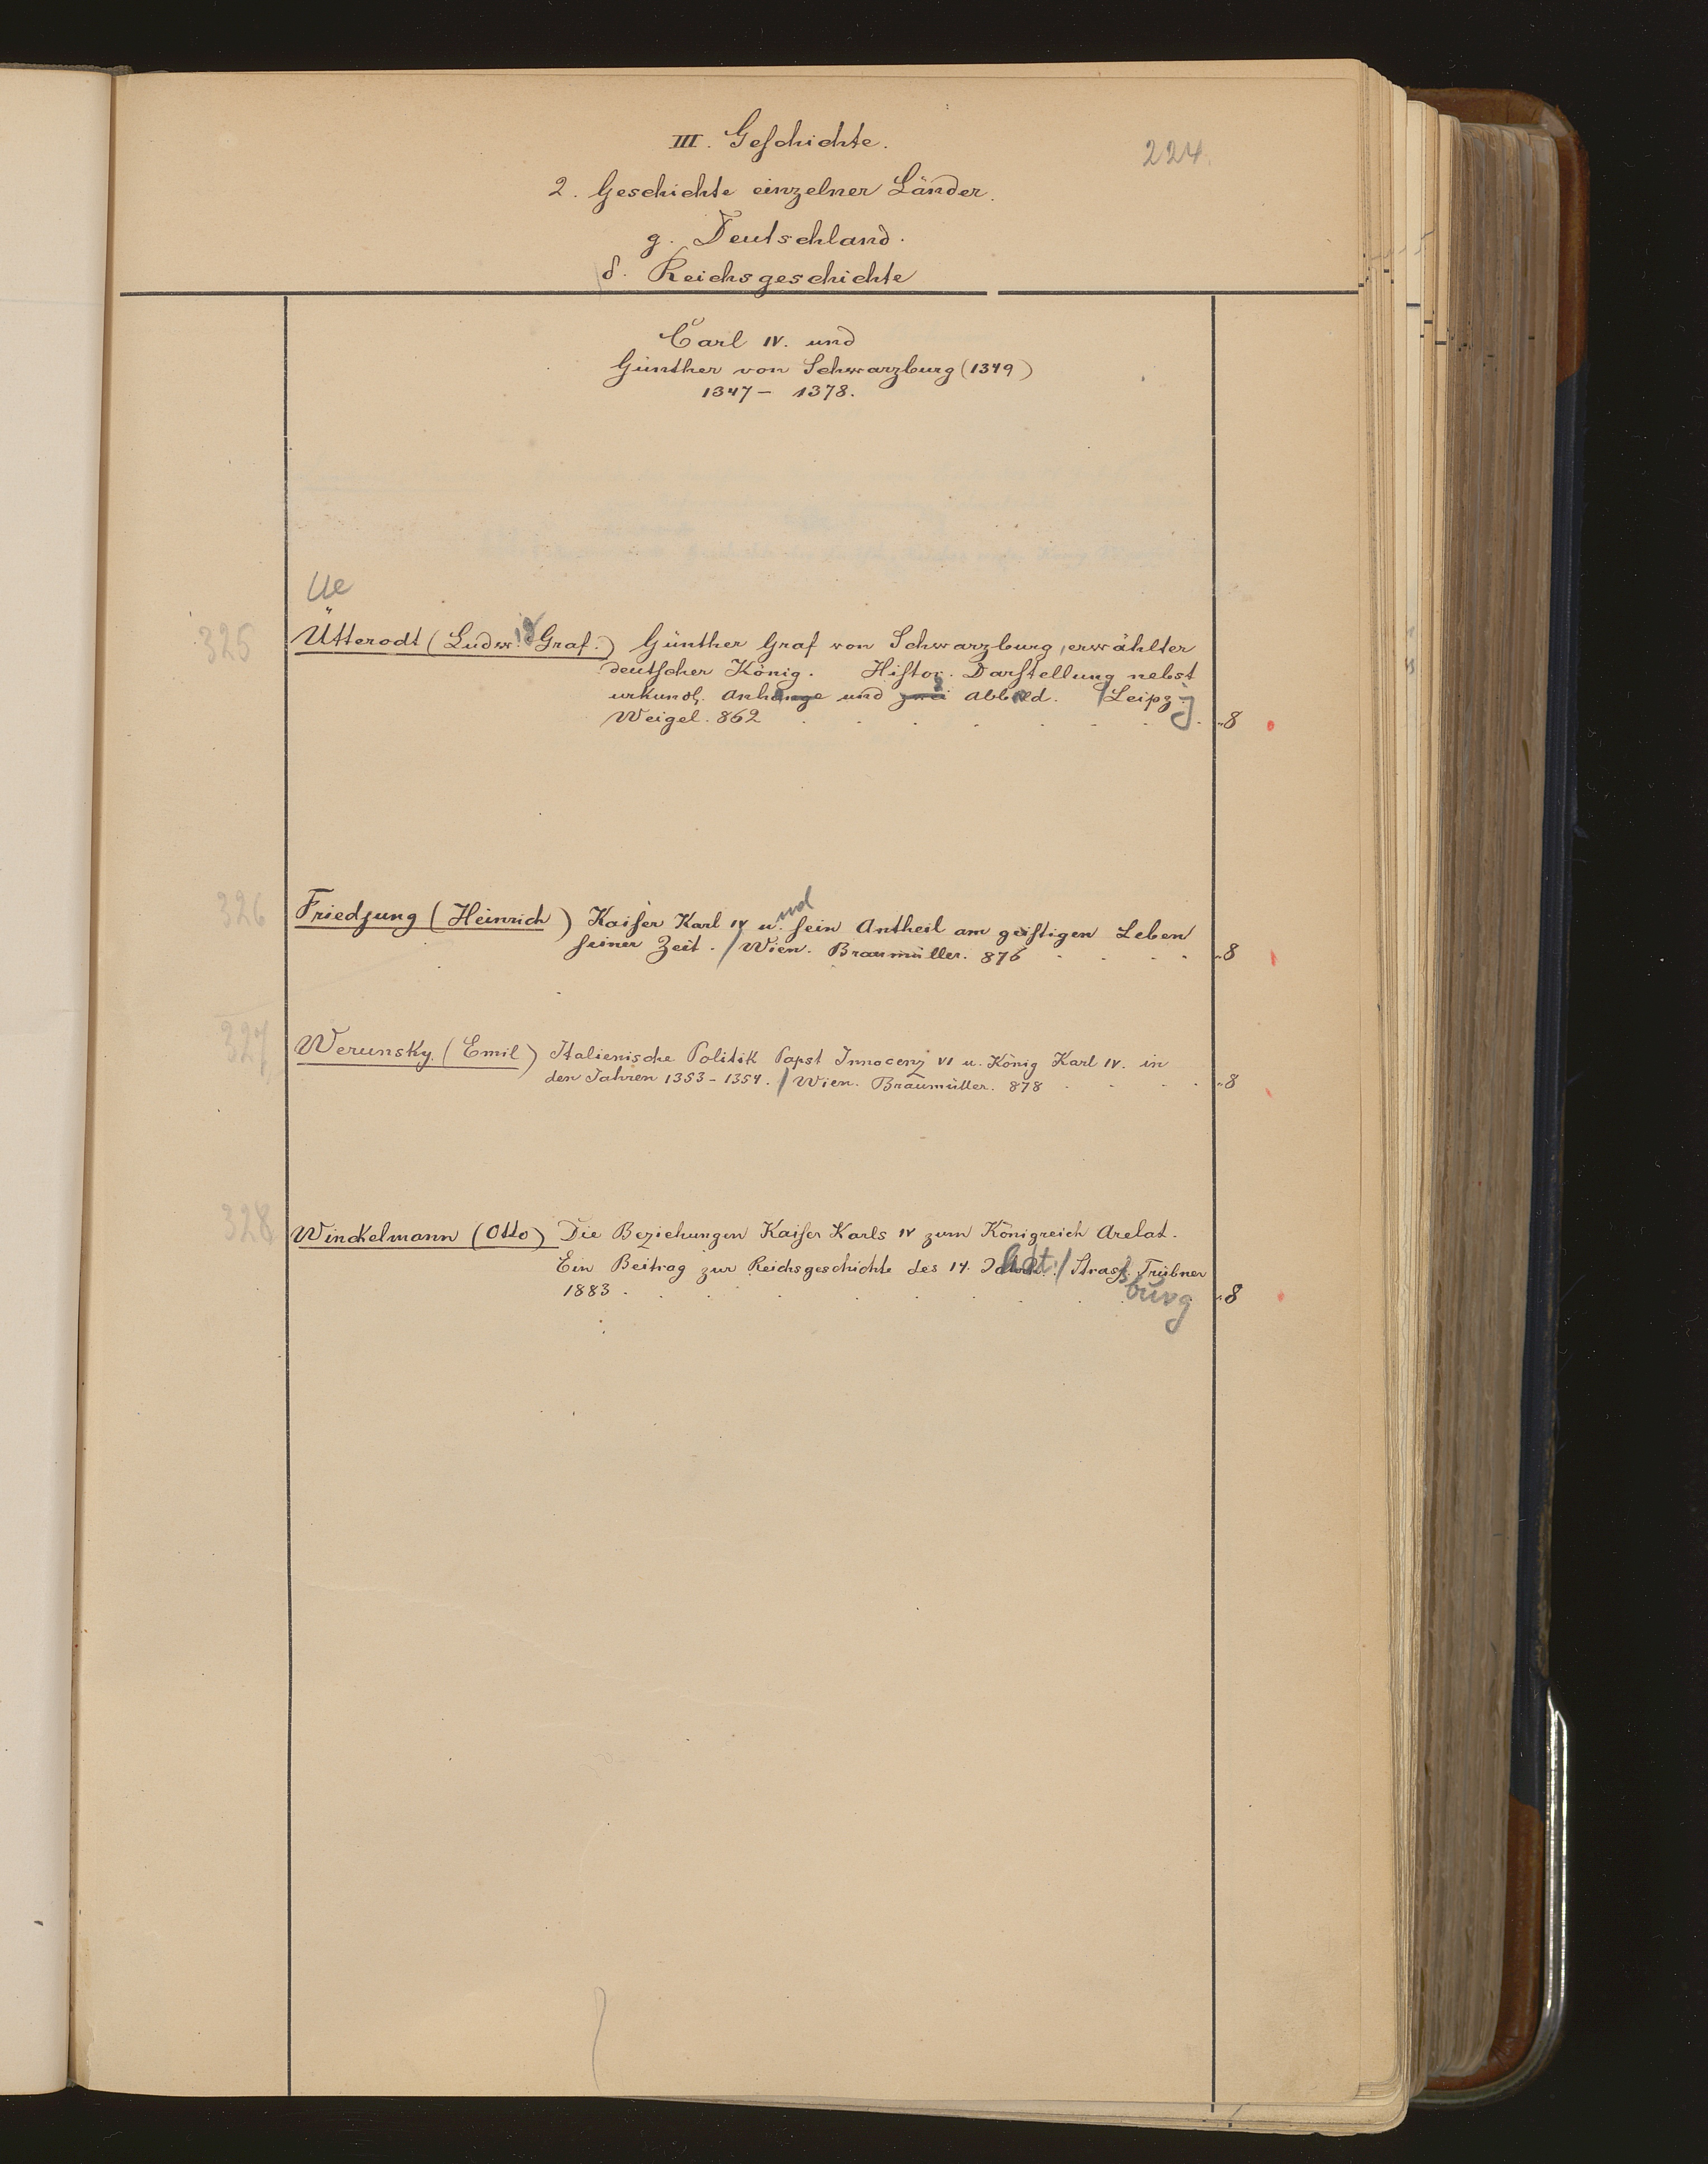 III. Geschichte.
224.
2. Geschichte einzelner Länder.
g. Deutschland.
δ. Reichsgeschichte
Carl IV. und
Günther von Schwarzburg (1349)
1347 - 1378.
Ue
325 Ütterodt (Ludw. ig Graf.) Günther Graf von Schwarzburg, erwählter
deutscher König. Histor. Darstellung nebst
urkundl. Anhange und zwei 2 Abbild. / Leipz. ig
Weigel. 862 . . . . . . . . „8
und
326 Friedjung (Heinrich) Kaiser Karl IV u. sein Antheil am geistigen Leben
seiner Zeit. / Wien. Braumüller. 876 . . . . „8
327 Werunsky. (Emil) Italienische Politik Papst Innocenz VI u. König Karl IV. in
den Jahren 1353 - 1354. / Wien. Braumüller. 878 . . . . „8
328 Winckelmann (Otto) Die Beziehungen Kaiser Karls IV zum Königreich Arelat.
Ein Beitrag zur Reichsgeschichte des 14. / Strass. Trübner
burg
1883 . . . . . . . . „8